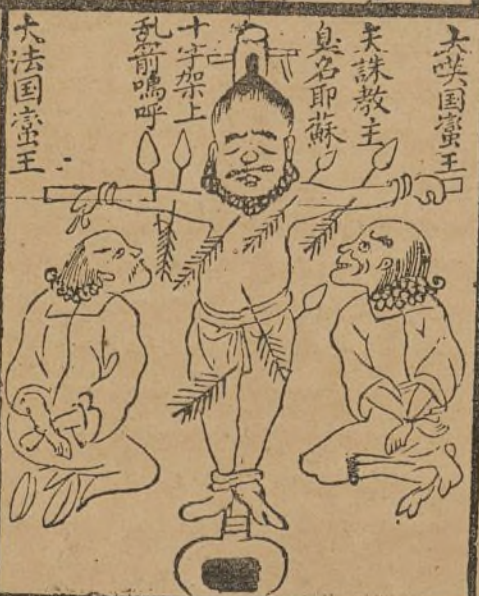 大𠸄国蛮王
天誅教主
臭名耶蘇
十字架上
乱箭嗚呼
大法国蛮王